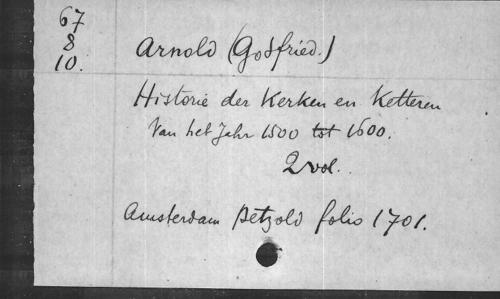 67
8
10.
Arnold (Godfried.)
Historie der Kerken en Ketteren
Van het Jahr 1500 tot 1600.
2 vol.
Amsterdam Petzold folio 1701.